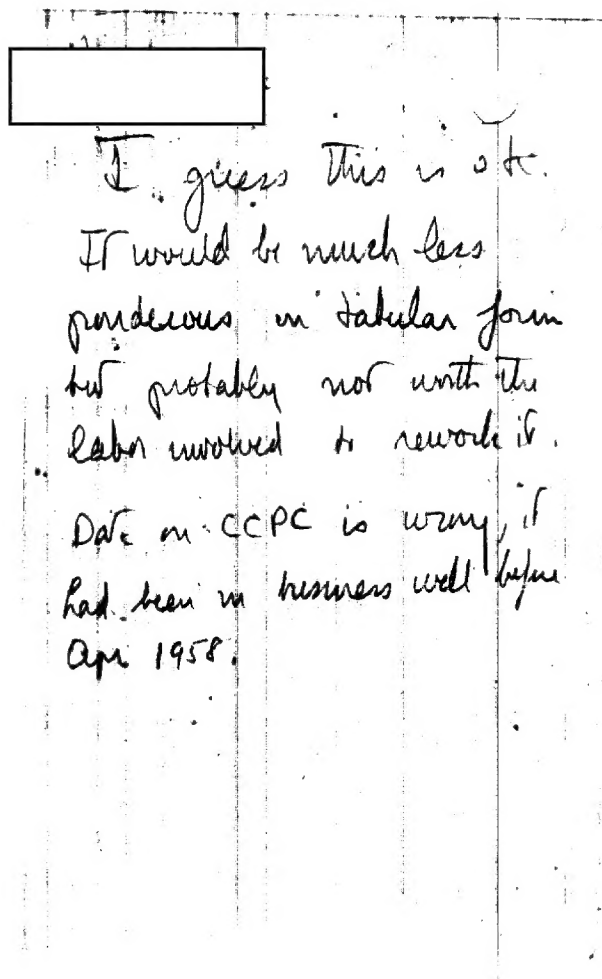 I guess this is ok.
It would be much less
ponderous in tabular form
but probably not worth the
labor involved to rework it.
Date on CCPC is wrong, it
had been in business well before
Apr 1958.